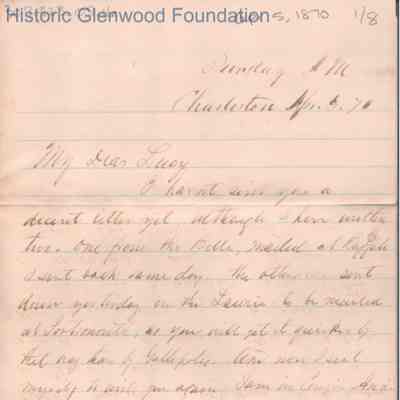 Historic Glenwood Foundation
5, 1870 1/8
Sunday A M
Charleston Apr. 3. 70
My Dear Lucy
I have not sent you a
decent letter yet although I have written
two. One from the Belle, mailed at
I sent back same day. The other sent
down yesterday on the Laurie to be mailed
at Portsmouth, as you will get it quicker by
that way than by Gallipolis. And now I seat
myself to write you again. I am in